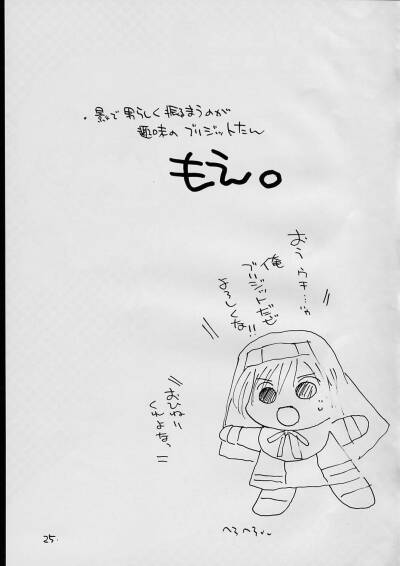 ・影で男らしく振るまうのが
趣味の ブリジットたん
もえ。
おう
俺
ブリジットだぜ
よろしくな!!
おひねり
くれよなっ
へろへろ
25.